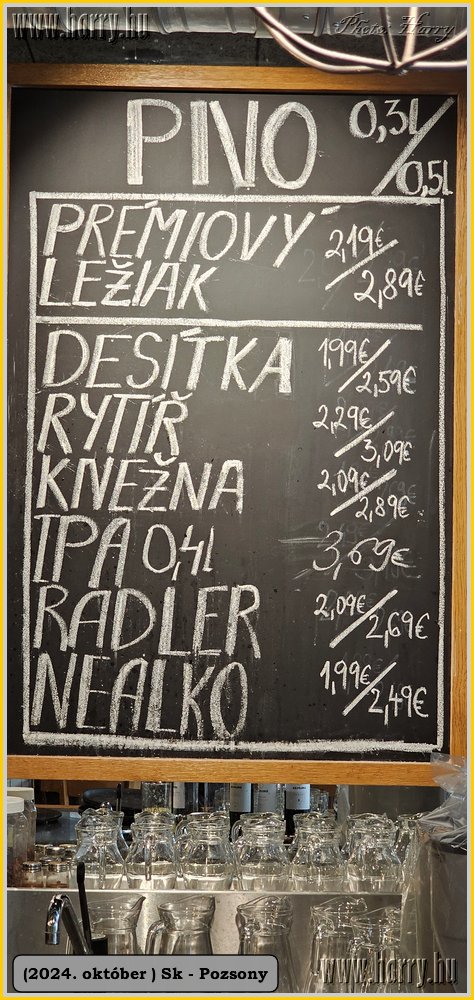 www.horry.hu
Photo: Horry
PIVO 0,3l/0,5l
PRÉMIOVÝ
LEŽIAK 2,19€/2,89€
DESÍTKA 1,99€/2,59€
RYTÍŘ 2,29€/3,09€
KNEŽNA 2,09€/2,89€
IPA 0,4l 3,69€
RADLER 2,09€/2,69€
NEALKO 1,99€/2,49€
www.horry.hu
(2024. október ) Sk - Pozsony